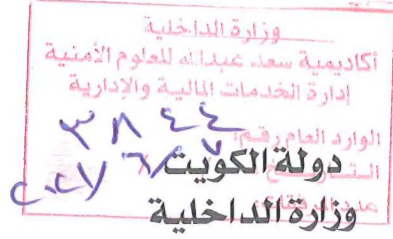 وزارة الداخلية
أكاديمية سعد عبدالله للعلوم الأمنية
إدارة الخدمات المالية والإدارية
الوارد العام رقم: ٣٨٤٤
دولة الكويت
وزارة الداخلية